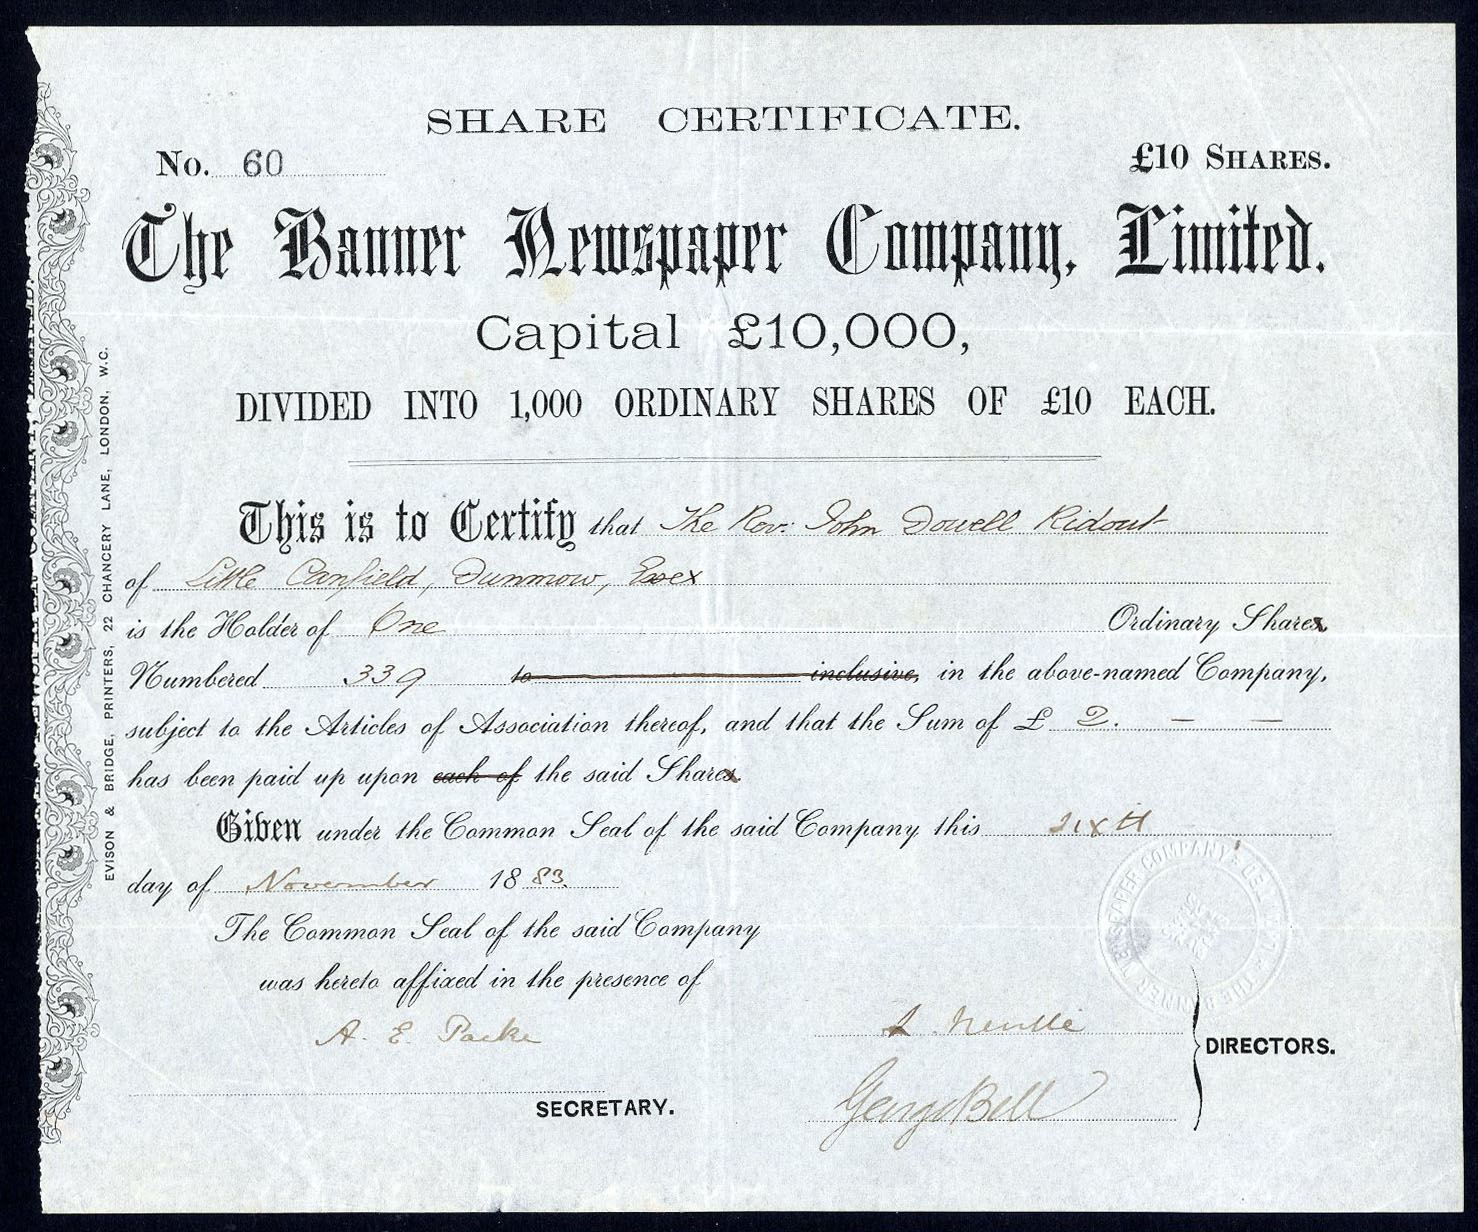 SHARE CERTIFICATE.
No. 60
£10 SHARES.
The Banner Newspaper Company, Limited.
Capital £10,000,
DIVIDED INTO 1,000 ORDINARY SHARES OF £10 EACH.
This is to Certify that The Rev: John Dowell Ridout
of Little Canfield, Dunmow, Essex
is the Holder of One Ordinary Shares
Numbered 339 to inclusive, in the above-named Company,
subject to the Articles of Association thereof, and that the Sum of £ 2. — —
has been paid up upon each of the said Shares.
Given under the Common Seal of the said Company this sixth
day of November 1883.
The Common Seal of the said Company
was hereto affixed in the presence of
A. E. Packe
SECRETARY.
Neville
George Bell
DIRECTORS.
EVISON & BRIDGE, PRINTERS, 22 CHANCERY LANE, LONDON, W.C.
THE BANNER NEWSPAPER COMPANY